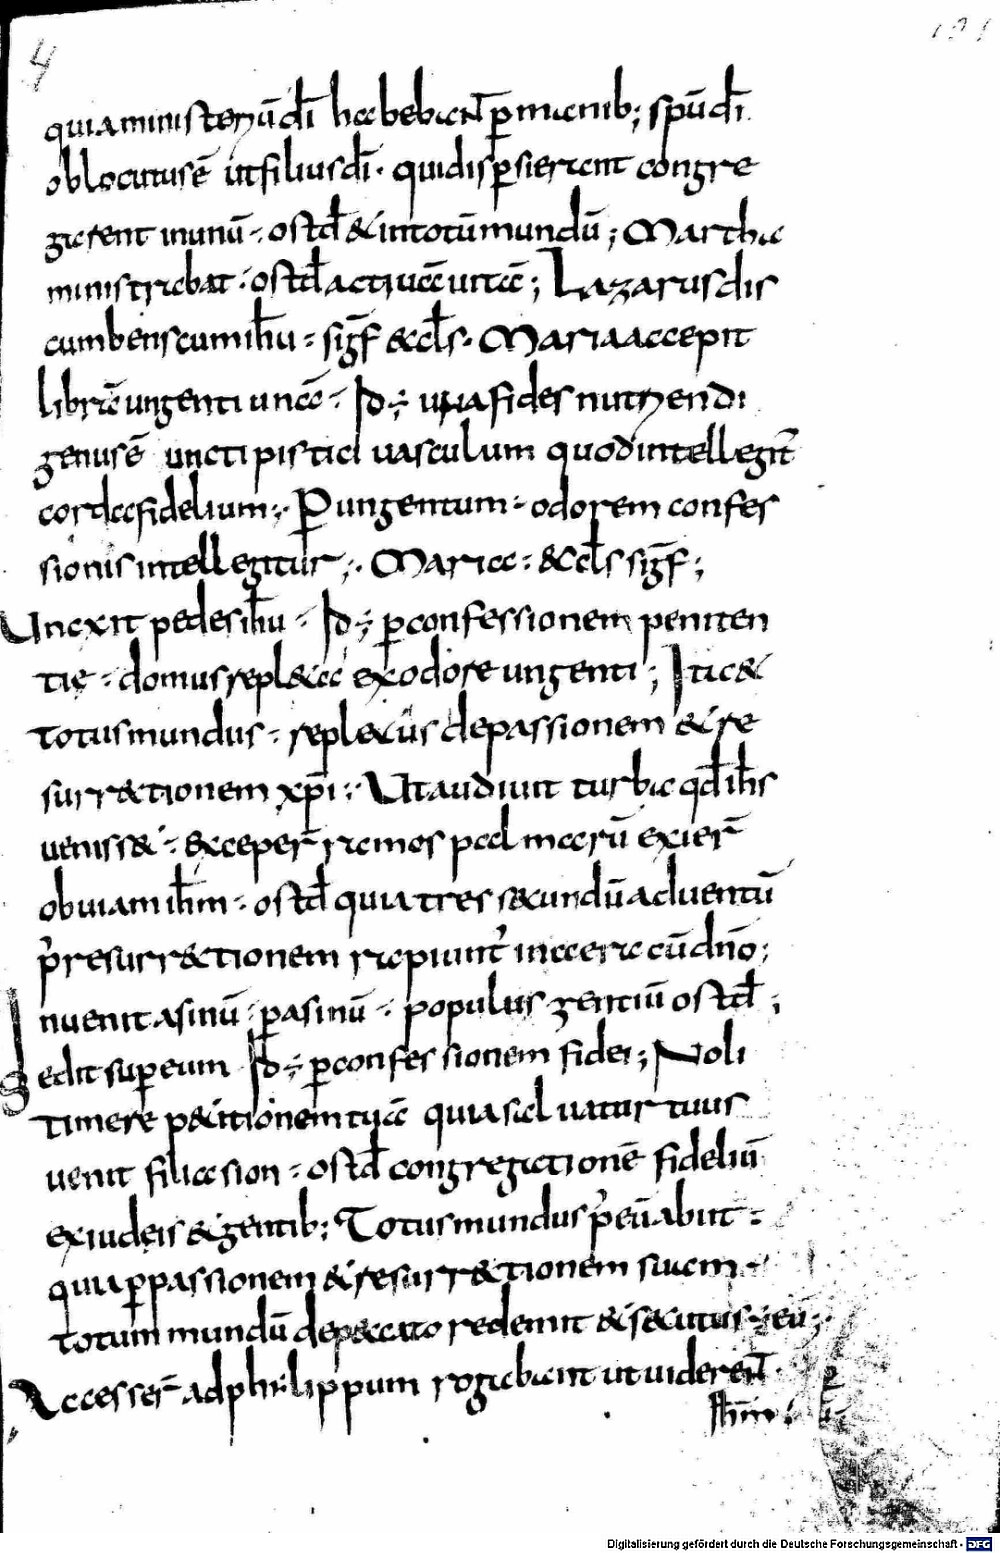 4
191
quiaministeriū dī habebant ꝑ manib; spū dī
oblocutusē ut filius dī · quidisꝑsierant congre
garent inunū · ostđ & intotū mundū; Martha
ministrabat · ostđ actiuā uitā; Lazarus dis
cumbens cum ihu · sigf & cls · Maria accepit
librā ungenti unā · Id ÷ una fides nutriendi
genus ē uncti pistici uasculum quod intellegit̄
corda fidelium · P ungentum · odorem confes
sionis intellegitur · Mariae · & cls sigf;
Unexit pedes ihu · Id ÷ ꝑ confessionem peniten
tię · domus repl&a ex odore ungenti; Ita &
totus mundus · repl&us de passionem & re
surr&tionem xp̄i · Ut audiuit turba qđ ihs
ueniss& · exceper̄ ramos palmarū exier̄
obuiam ihm · ostđ quia tres secundū aduentū
p̄ resurr&tionem rapiunt̄ in aera cū dn̄o;
Inuenit asinū · ꝑ asinū · populus gentiū ostđ;
Sedit super eum Id ÷ ꝑ confessionem fidei; Noli
timere p&itionem tuā quia saluatur tuus
uenit filia sion · ostđ congregationē fidelū
ex iudeis & gentib; Totus mundus p̄ eū abiit ·
quia ꝑ passionem & resurr&tionem suam
totum mundū de peccato redemit & secutus ÷ eū;
Accesser̄ ad philippum rogabant ut uiderent
ihm ·
Digitalisierung gefördert durch die Deutsche Forschungsgemeinschaft - DFG